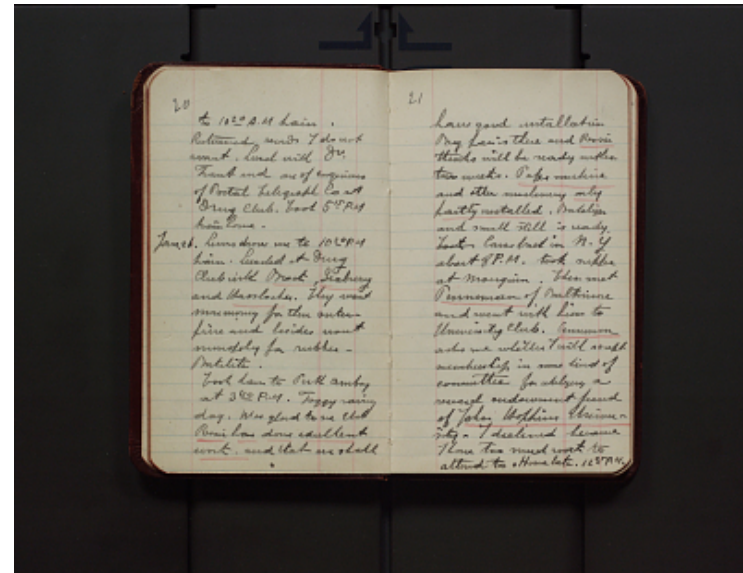 20
to 10²⁰ A.M train.
Returned words I do not
want. Lunch with Dr.
Frank and one of engineers
of Postal Telegraph Co at
Drug Club. Took 5 P.M
train home.
Jan. 26. drove me to 10²⁰ A.M
train. Lunched at Drug
Club with Brock, Seabury
and Hasslacher. They want
more money for their enter-
prise and besides want
monopoly for rubber-
Bakelite.
Took train to Perth Amboy
at 3 P.M. Foggy rainy
day. Was glad to see that
Rossi has done excellent
work and that we shall
21
have good installation
Dry pan is there and Rossi
thinks will be ready within
two weeks. Paper machine
and other machinery only
partly installed. Bakelizer
and small still is ready.
Came back in N.Y
about 8 P.M. took supper
at Mouquin. Then met
Penniman of Baltimore
and went with him to
University Club. Penniman
asks me whether I will accept
membership in some kind of
committee for obtaining a
research endowment fund
of Johns Hopkins Univer-
sity. I declined because
I have too much work to
attend to. Home late. 12 P.M.